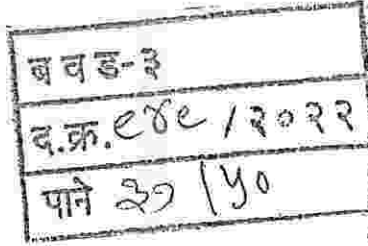 ब व ड-३
द.क्र. ९४९ / २०२२
पाने / ५०